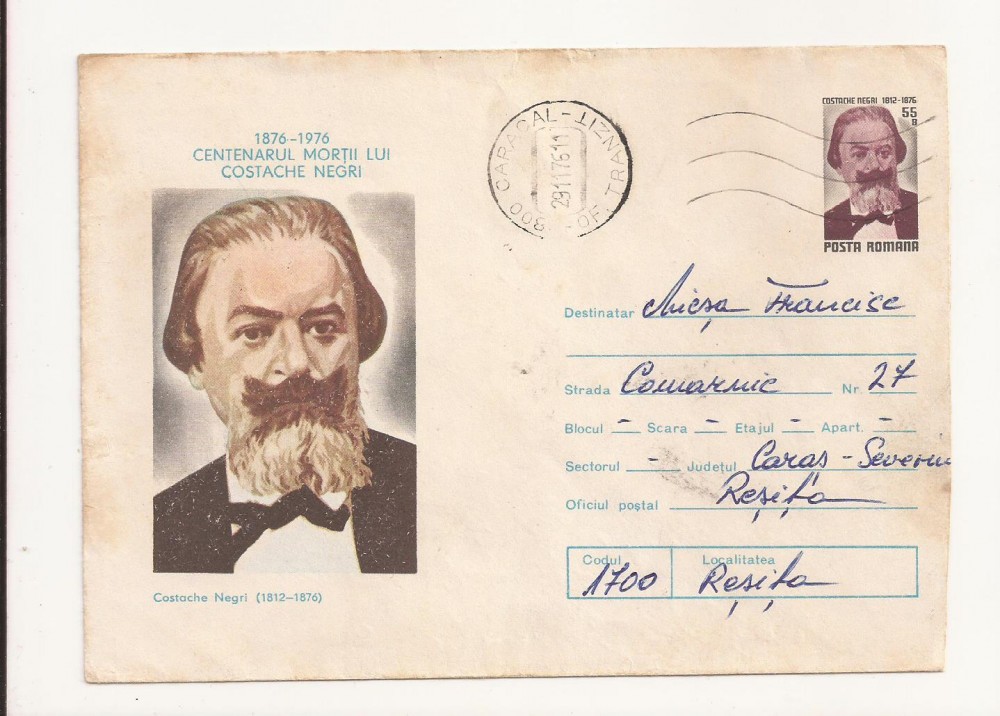 1876-1976
CENTENARUL MORȚII LUI
COSTACHE NEGRI
Costache Negri (1812-1876)
300 CARACAL - OF. TRANZIT -
29117611
COSTACHE NEGRI 1812-1876
55
B
POSTA ROMANA
Destinatar Micșa Francisc
Strada Comarnic Nr. 27
Blocul – Scara – Etajul – Apart. –
Sectorul – Județul Caraș-Severin
Oficiul poștal Reșița
Codul 1700
Localitatea Reșița